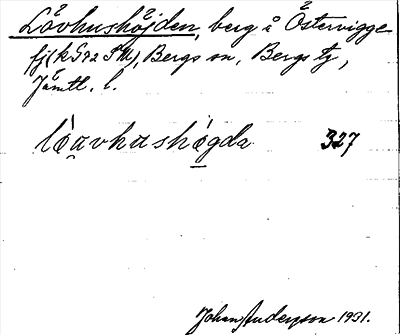 Lövhushöjden, berg å Östervigge
fj (k 592 SM), Bergs sn, Bergs tg,
Jämtl. l.
löavhashögda 327
Johan Anderson 1931.